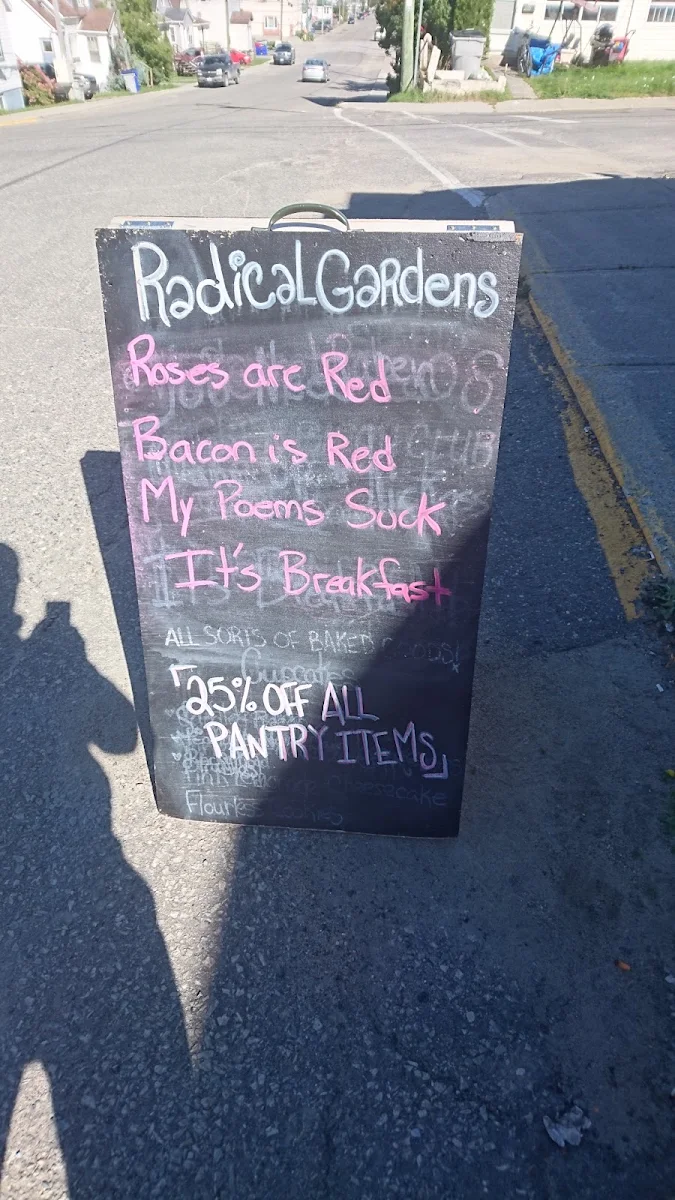 Radical Gardens
Roses are Red
Bacon is Red
My Poems Suck
It's Breakfast
ALL SORTS OF BAKED GOODS!
Cupcakes
25% OFF ALL
PANTRY ITEMS